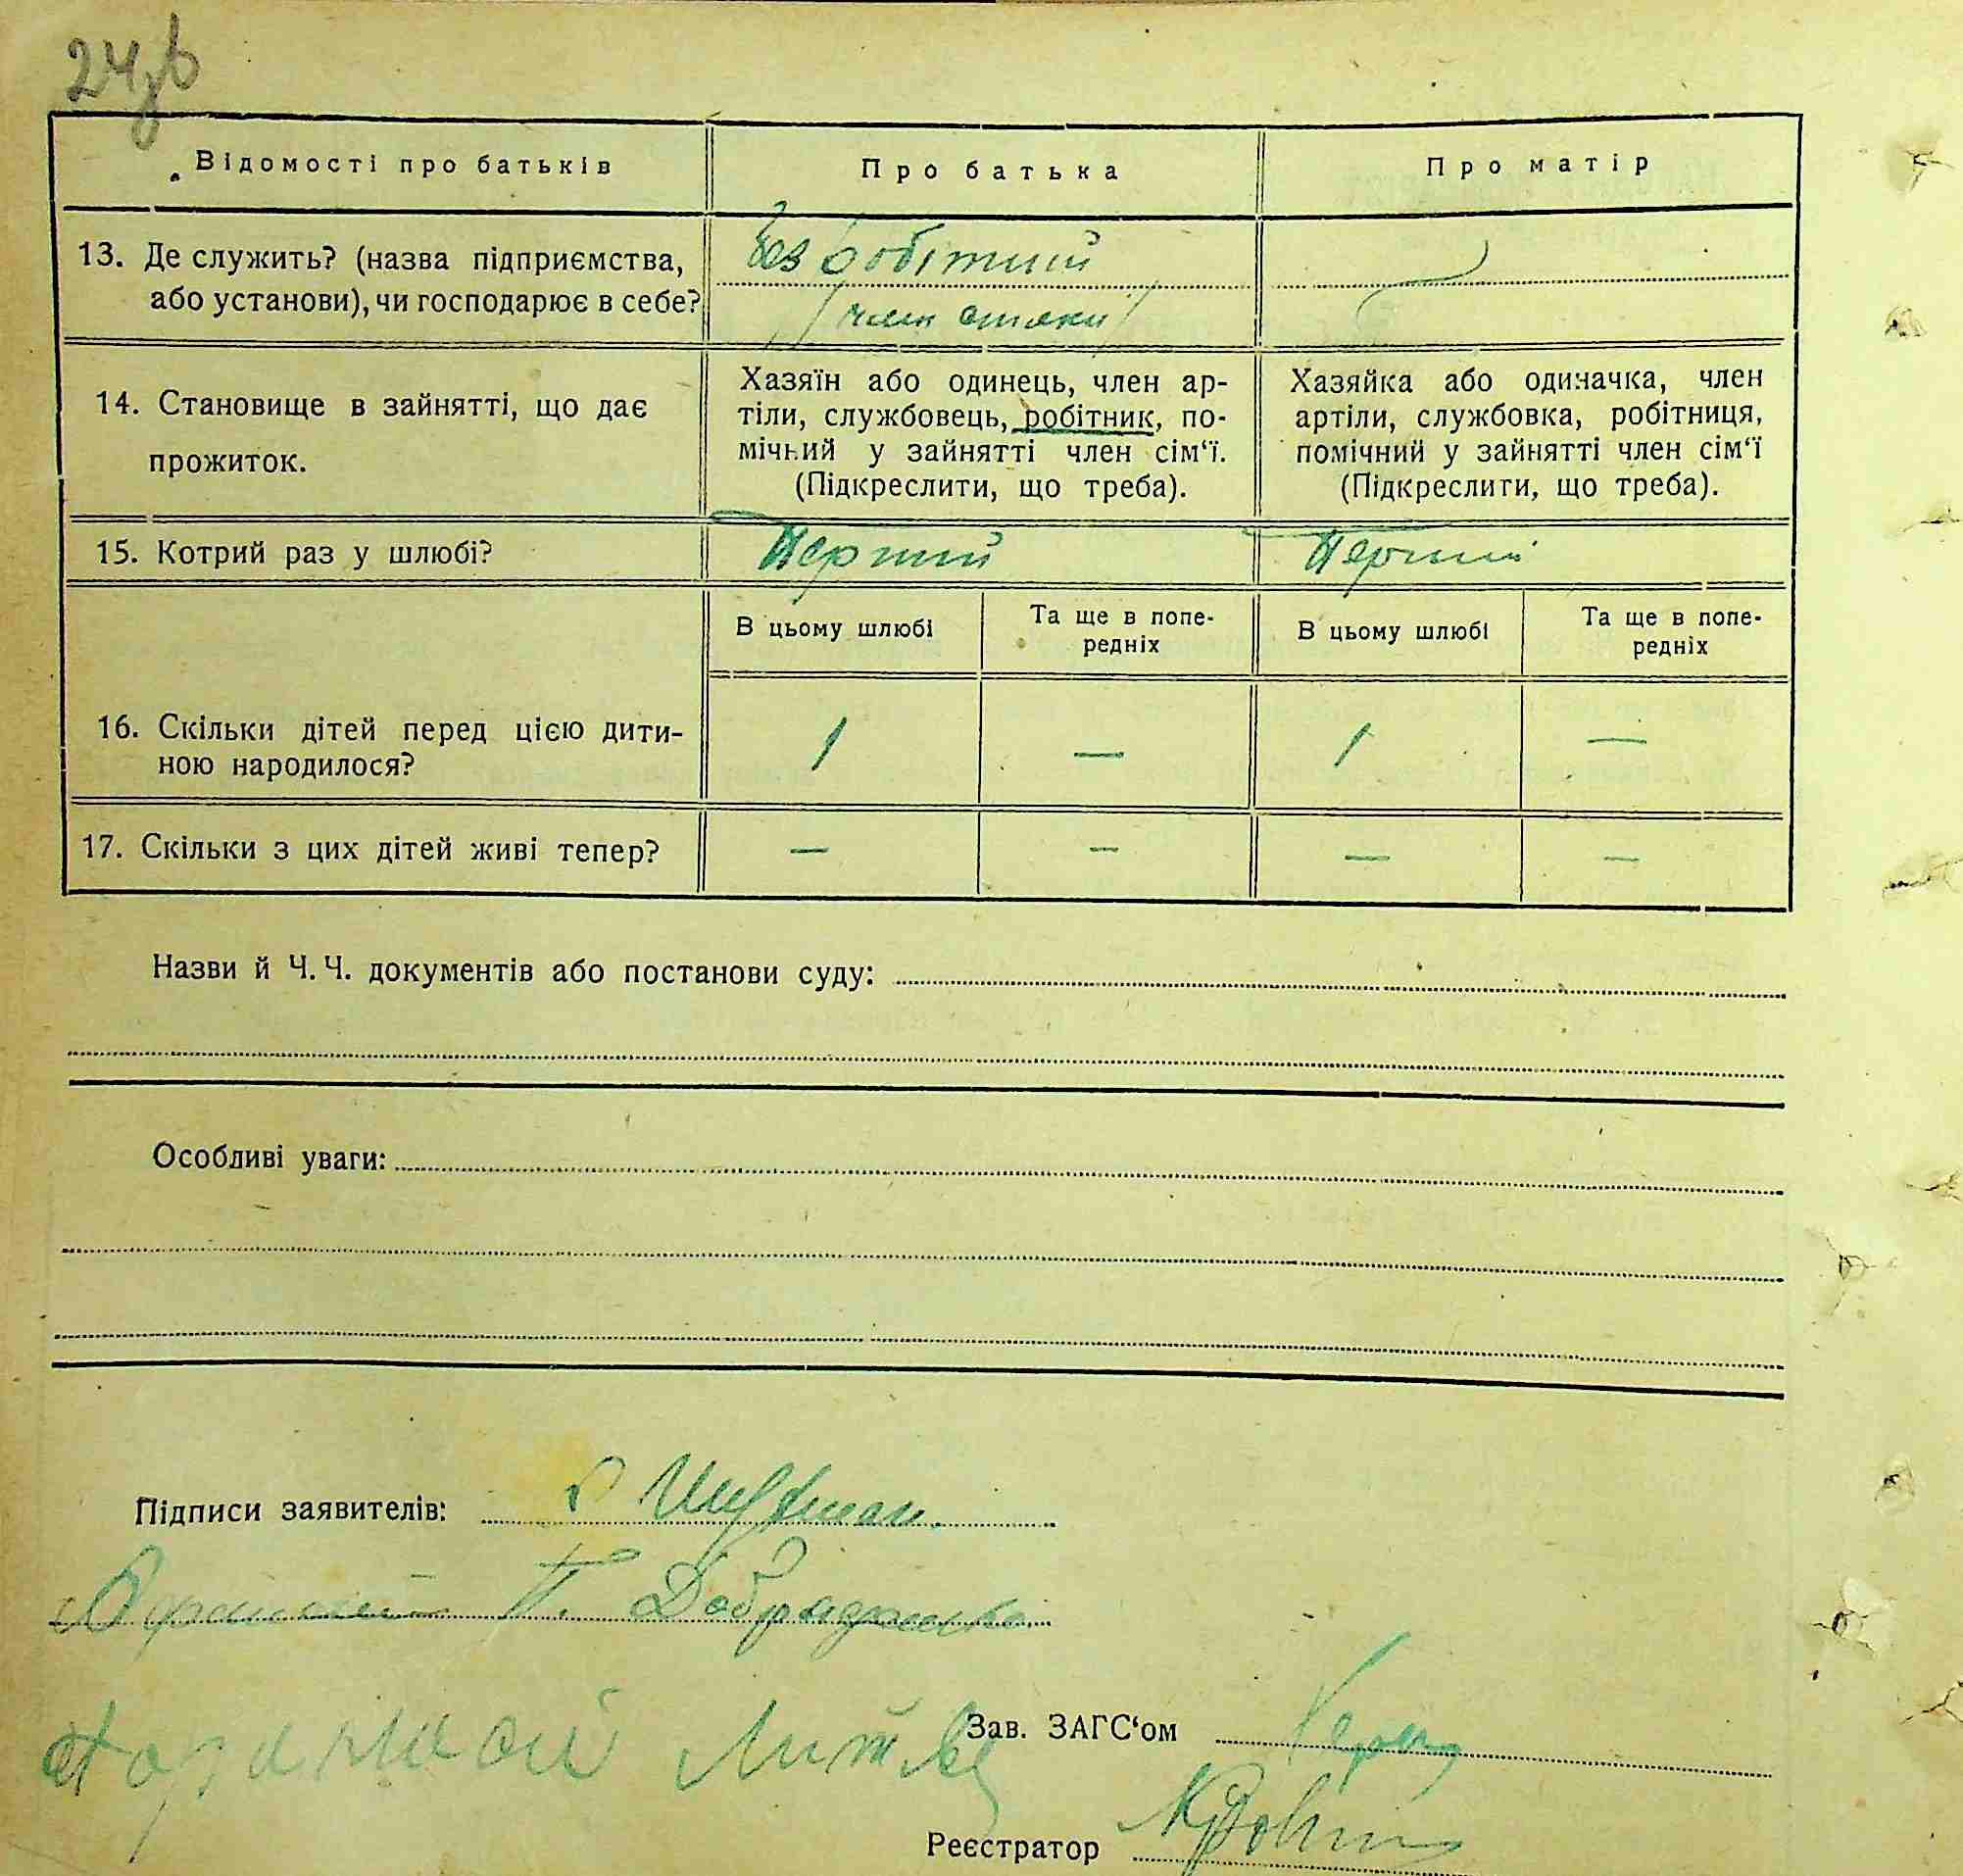 24зв
Відомості про батьків
Про батька
Про матір
13. Де служить? (назва підприємства,
або установи), чи господарює в себе?
Безробітний
/член спілки/
—
14. Становище в зайнятті, що дає
прожиток.
Хазяїн або одинець, член ар-
тіли, службовець, робітник, по-
мічний у зайнятті член сім‘ї.
(Підкреслити, що треба).
Хазяйка або одиначка, член
артіли, службовка, робітниця,
помічний у зайнятті член сім‘ї
(Підкреслити, що треба).
15. Котрий раз у шлюбі?
Перший
Перший
В цьому шлюбі
Та ще в попе-
редніх
В цьому шлюбі
Та ще в попе-
редніх
16. Скільки дітей перед цією дити-
ною народилося?
1
—
1
—
17. Скільки з цих дітей живі тепер?
—
—
—
—
Назви й Ч. Ч. документів або постанови суду:
Особливі уваги:
Підписи заявителів:
П.
Зав. ЗАГС‘ом
Реєстратор